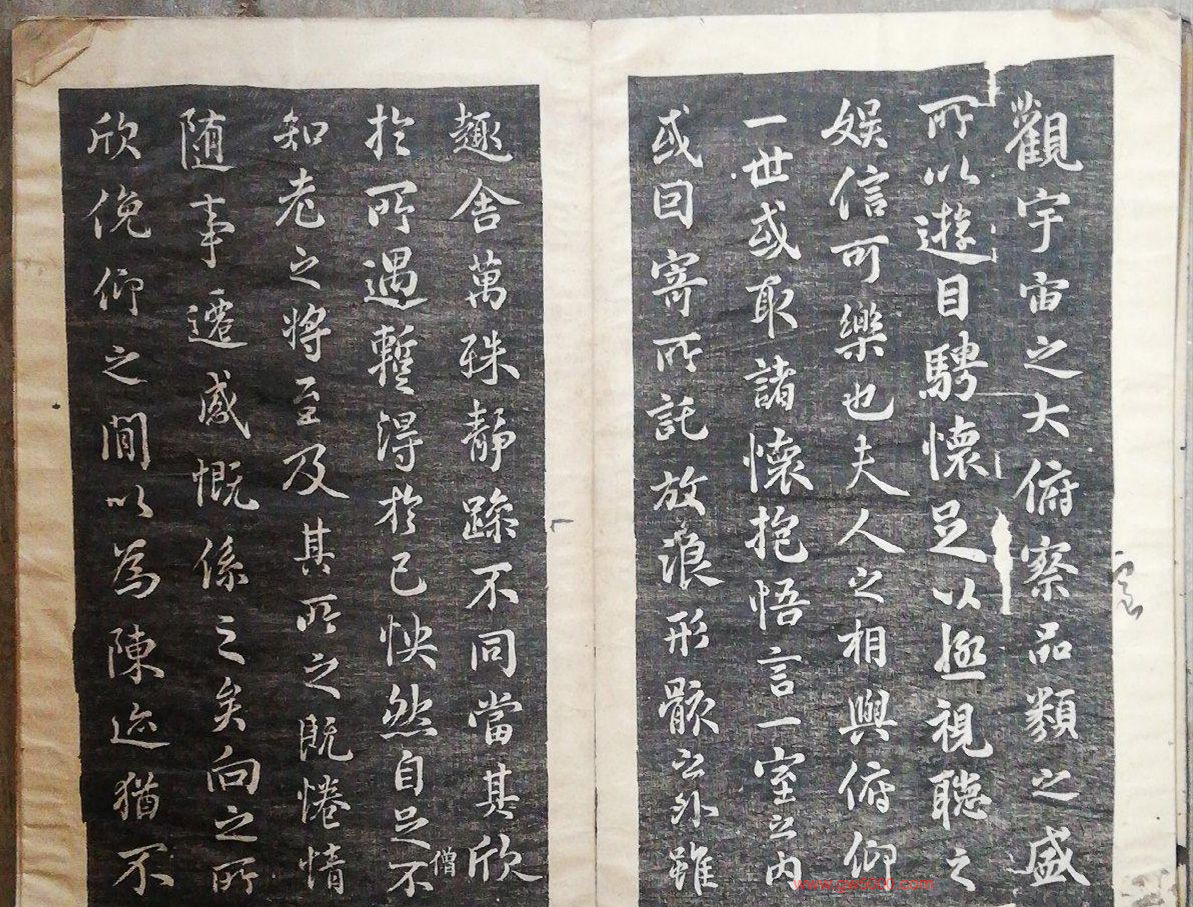 觀宇宙之大俯察品類之盛
所以遊目騁懷足以極視聽之
娛信可樂也夫人之相與俯仰
一世或取諸懷抱悟言一室之內
或因寄所託放浪形骸之外雖
趣舍萬殊靜躁不同當其欣
於所遇暫得於己怏然自足不
僧
知老之將至及其所之既惓情
隨事遷感慨係之矣向之所
欣俛仰之閒以為陳迹猶不
www.gw5000.com